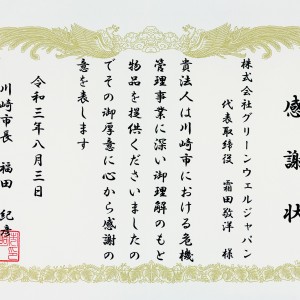 感謝状
株式会社グリーンウェルジャパン
代表取締役 霜田敬洋 様
貴法人は川崎市における危機
管理事業に深い御理解のもと
物品を提供くださいましたの
でその御厚意に心から感謝の
意を表します
令和三年八月三日
川崎市長 福田 紀彦